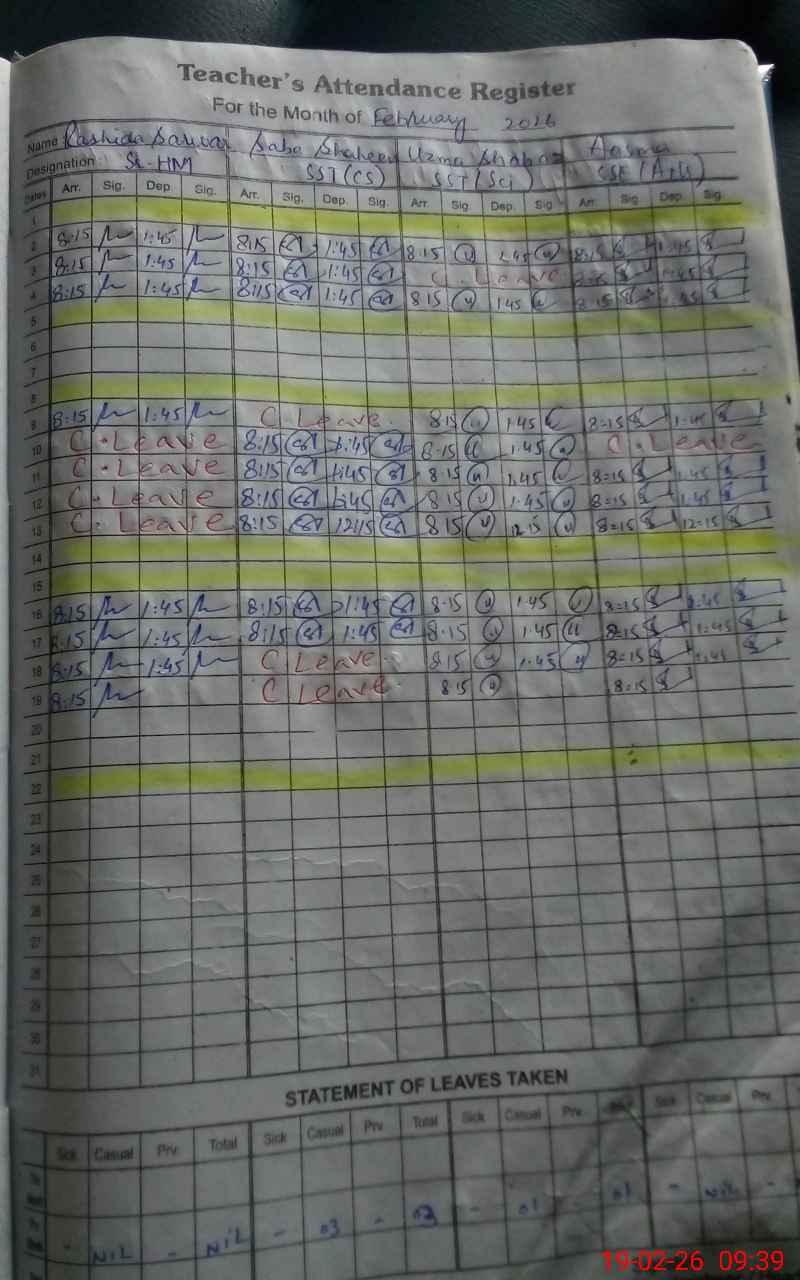 Teacher's Attendance Register
For the Month of February 2026
Name Rashida Sarwar Saba Shaheen Uzma Shahnaz Aasma
Designation: Sr. HM SST(CS) SST(Sci) SSE(Arts)
Dates Arr. Sig. Dep. Sig. Arr. Sig. Dep. Sig. Arr. Sig. Dep. Sig Arr. Sig Dep. Sig.
1
2 8:15 1:45 8:15 1:45 8:15 1:45 8:15 1:45
3 8:15 1:45 8:15 1:45 C. Leave 8:15 1:45
4 8:15 1:45 8:15 1:45 8:15 1:45 8:15 1:45
5
6
7
8
9 8:15 1:45 C Leave. 8:15 1:45 8=15 1:45
10 C. Leave 8:15 1:45 8:15 1:45 C. Leave
11 C. Leave 8:15 1:45 8:15 1:45 8=15 1:45
12 C. Leave 8:15 1:45 8:15 1:45 8=15 1:45
13 C. Leave 8:15 12:15 8:15 12:15 8=15 12=15
14
15
16 8:15 1:45 8:15 1:45 8:15 1:45 8=15 1:45
17 8:15 1:45 8:15 1:45 8:15 1:45 8=15 1:45
18 8:15 1:45 C Leave. 8:15 1:45 8=15 1:45
19 8:15 C Leave. 8:15 8=15
20
21
22
23
24
25
26
27
28
29
30
31
STATEMENT OF LEAVES TAKEN
Sick Casual Prv. Total Sick Casual Prv. Total Sick Casual Prv. Sick Casual Prv.
- NIL - NIL - 03 - 03 - 01 - 01 - NIL -
19-02-26 09:39